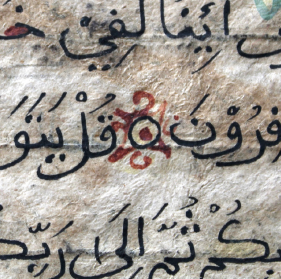 أَئِنَّا لَفِيْ خـ
فِرُوْنَ ۝ قُلْ يَتَوَ
بِكُمْ ثُمَّ اِلَى رَبِّكـ